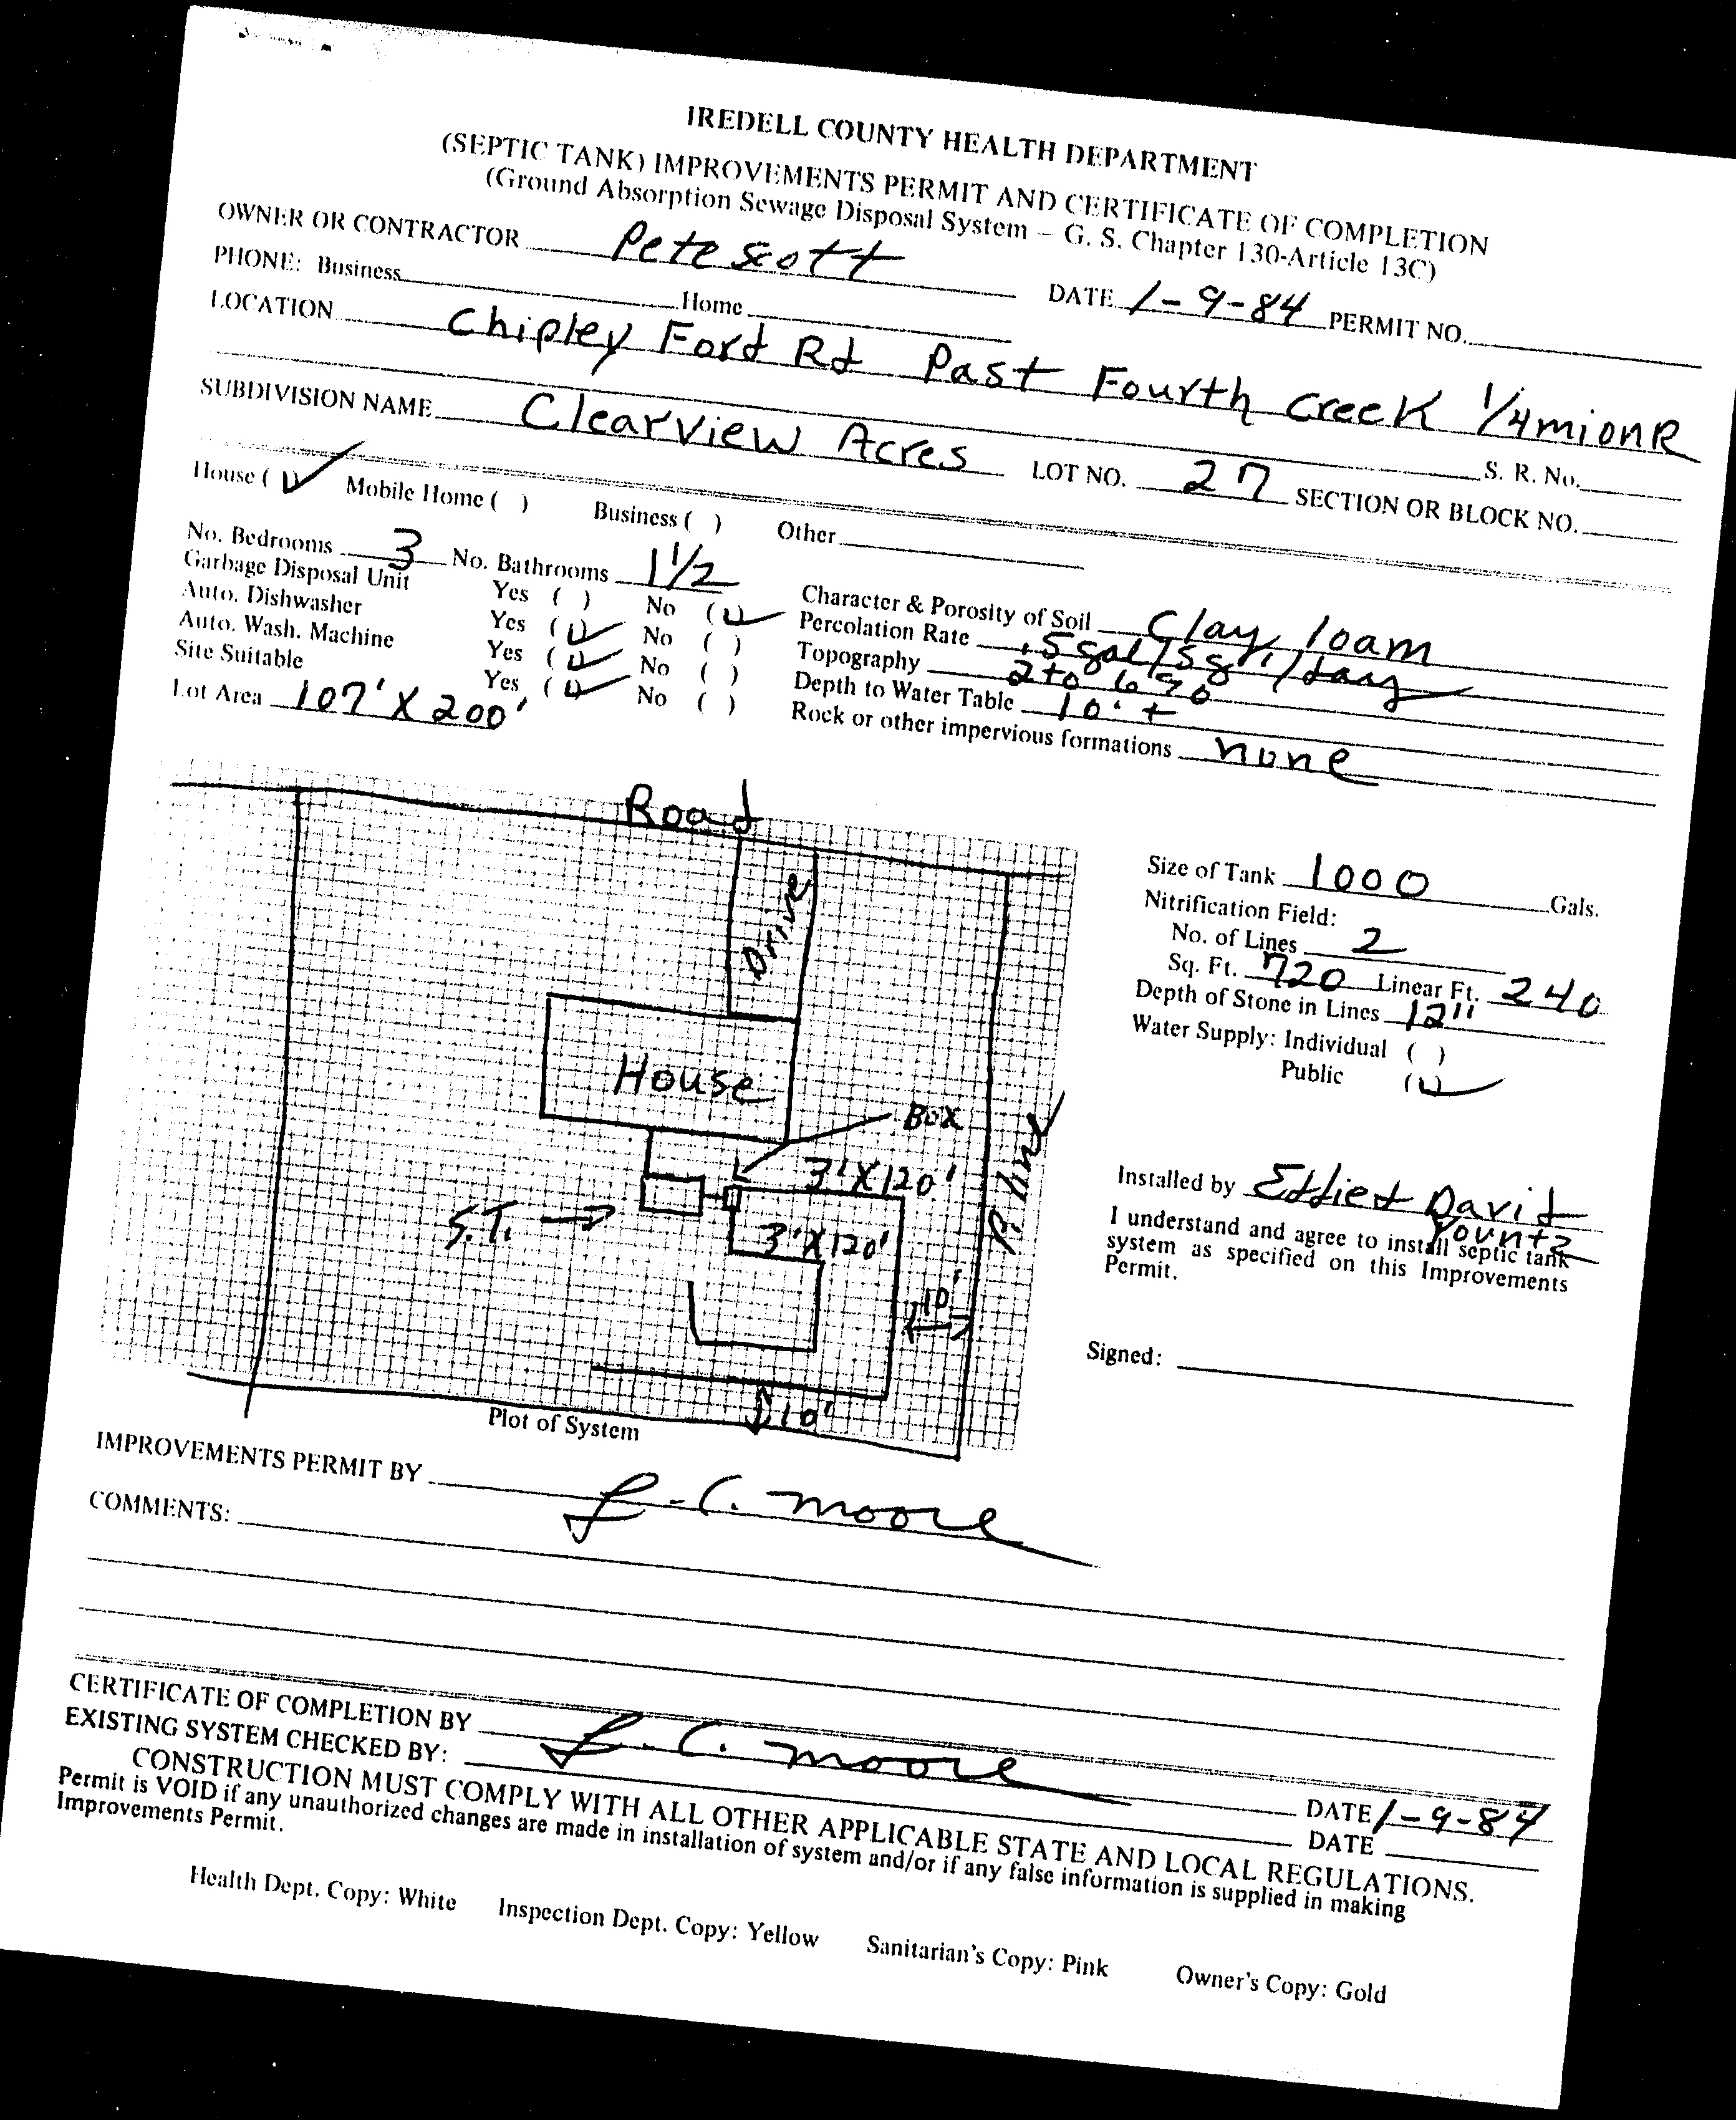 IREDELL COUNTY HEALTH DEPARTMENT
(SEPTIC TANK) IMPROVEMENTS PERMIT AND CERTIFICATE OF COMPLETION
(Ground Absorption Sewage Disposal System – G. S. Chapter 130-Article 13C)
OWNER OR CONTRACTOR Pete Scott DATE 1-9-84 PERMIT NO.
PHONE: Business Home
LOCATION Chipley Ford Rd Past Fourth Creek 1/4 mi on R
S. R. No.
SUBDIVISION NAME Clearview Acres LOT NO. 27 SECTION OR BLOCK NO.
House (✓) Mobile Home ( ) Business ( ) Other
No. Bedrooms 3 No. Bathrooms 1 1/2
Garbage Disposal Unit Yes ( ) No (✓)
Auto. Dishwasher Yes (✓) No ( )
Auto. Wash. Machine Yes (✓) No ( )
Site Suitable Yes (✓) No ( )
Lot Area 107' X 200'
Character & Porosity of Soil Clay loam
Percolation Rate .5 gal/sq ft/day
Topography 2 to 6 %
Depth to Water Table 10' +
Rock or other impervious formations none
Road
Drive
House
BOX
3' X 120'
S.T.
3' X 120'
P. line
10'
10'
Plot of System
Size of Tank 1000 Gals.
Nitrification Field:
No. of Lines 2
Sq. Ft. 720 Linear Ft. 240
Depth of Stone in Lines 12"
Water Supply: Individual ( )
Public (✓)
Installed by Eddie & David
Pountz
I understand and agree to install septic tank
system as specified on this Improvements
Permit.
Signed:
IMPROVEMENTS PERMIT BY L. C. Moore
COMMENTS:
CERTIFICATE OF COMPLETION BY L. C. Moore DATE 1-9-84
EXISTING SYSTEM CHECKED BY: DATE
CONSTRUCTION MUST COMPLY WITH ALL OTHER APPLICABLE STATE AND LOCAL REGULATIONS.
Permit is VOID if any unauthorized changes are made in installation of system and/or if any false information is supplied in making
Improvements Permit.
Health Dept. Copy: White Inspection Dept. Copy: Yellow Sanitarian's Copy: Pink Owner's Copy: Gold